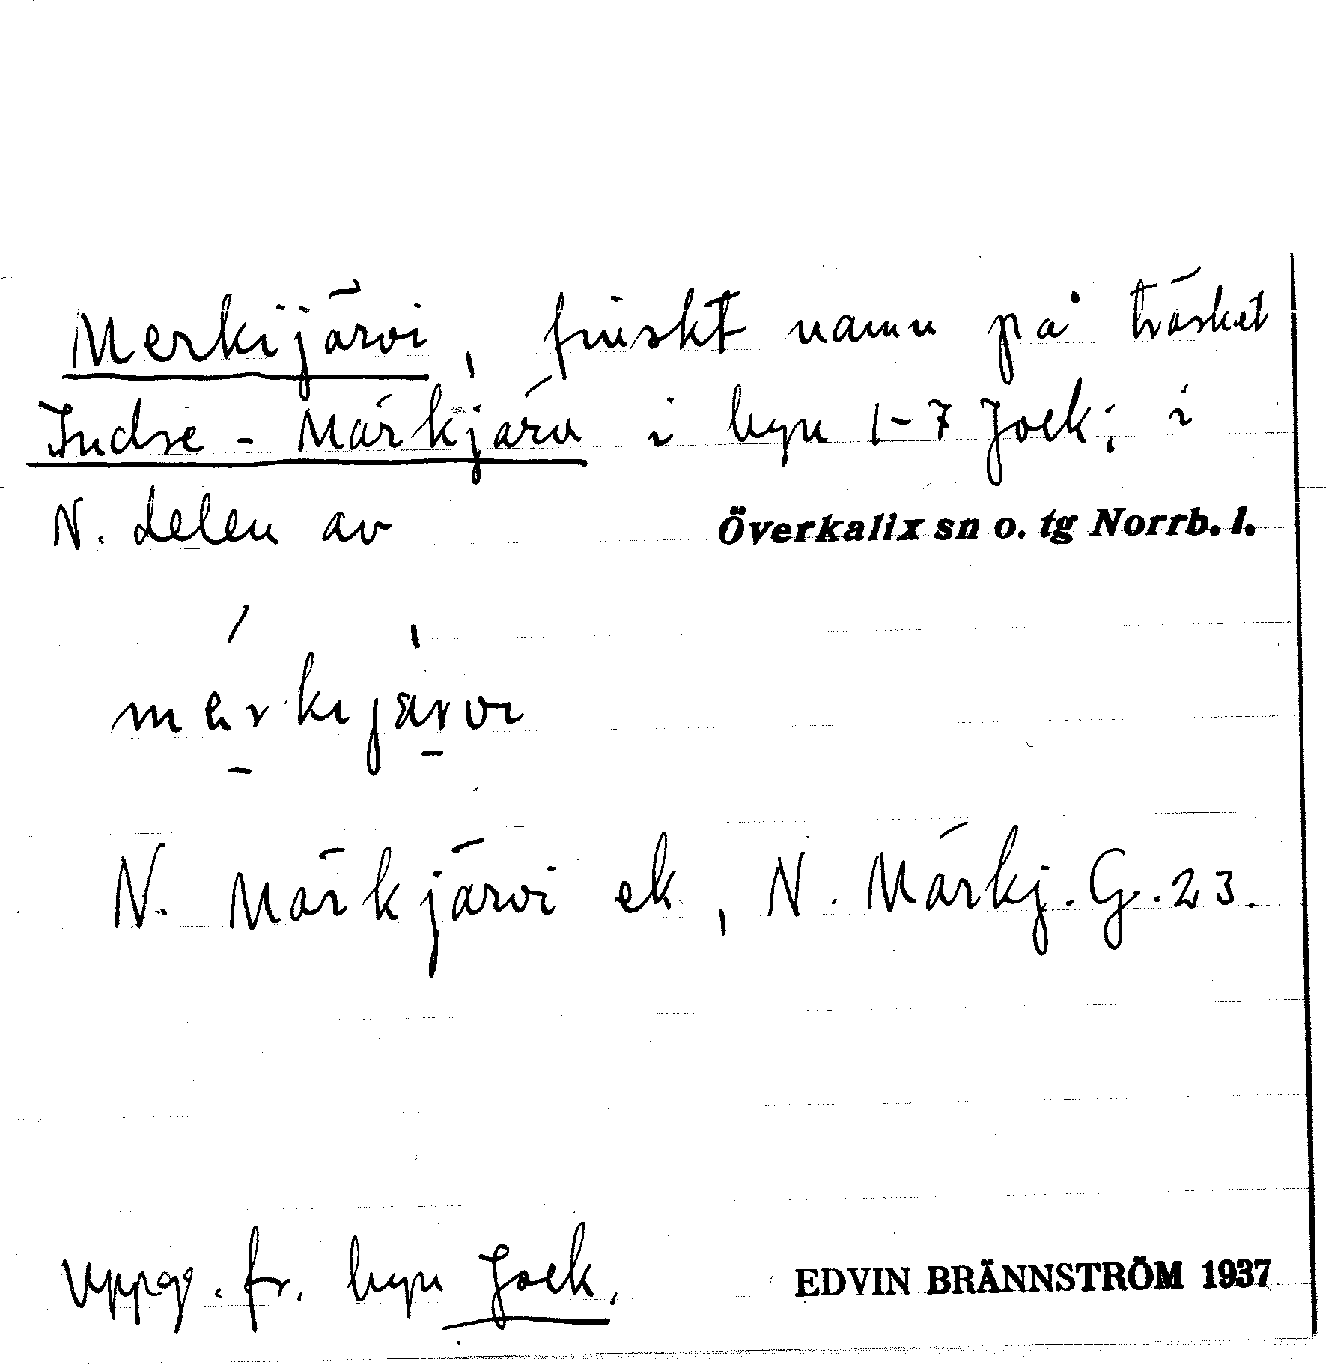 Merkijärvi, finskt namn på träsket
Indre-Märkjärv i byn 1-7 Jock; i
N. delen av Överkalix sn o. tg Norrb. l.
mérkijärvi
N. Märkjärvi ek, N. Märkj. G. 23.
Uppg. fr. byn Jock. EDVIN BRÄNNSTRÖM 1937